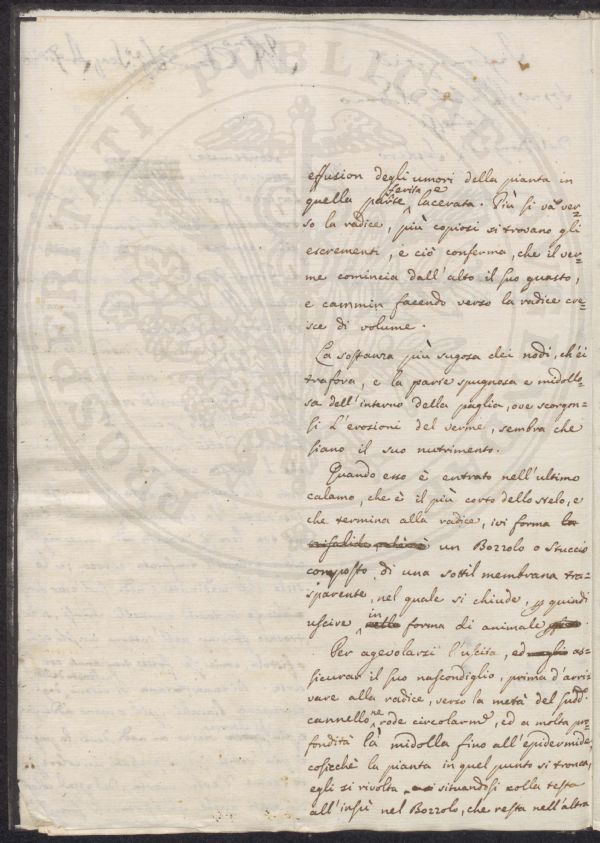 effusion degli umori della pianta in
quella parte ferita e lacerata. Più si va ver-
so la radice, più copiosi si trovano gli
escrementi, e ciò conferma, che il ver-
me comincia dall'alto il suo guasto,
e cammin facendo verso la radice cre-
sce di volume.
La sostanza più sugosa dei nodi, ch'ei
trafora, e la parte spugnosa e midollo-
sa dell'interno della paglia, ove scorgon-
si l'erosioni del verme, sembra che
siano il suo nutrimento.
Quando esso è entrato nell'ultimo
calamo, che è il più corto dello stelo, e
che termina alla radice, ivi forma la
crisalide un Bozzolo o stuccio
composto di una sottil membrana tra-
sparente, nel quale si chiude, p quindi
uscire in forma di animale
Per agevolarsi l'uscita, ed meglio as-
sicurar il suo nascondiglio, prima d'arri-
vare alla radice, verso la metà del sudd.
cannello ne rode circolarm.e, ed a molta pro-
fondità la midolla fino all'epidermide,
cosicchè la pianta in quel punto si tronca,
egli si rivolta situandosi colla testa
all'insù nel Bozzolo, che resta nell'altra